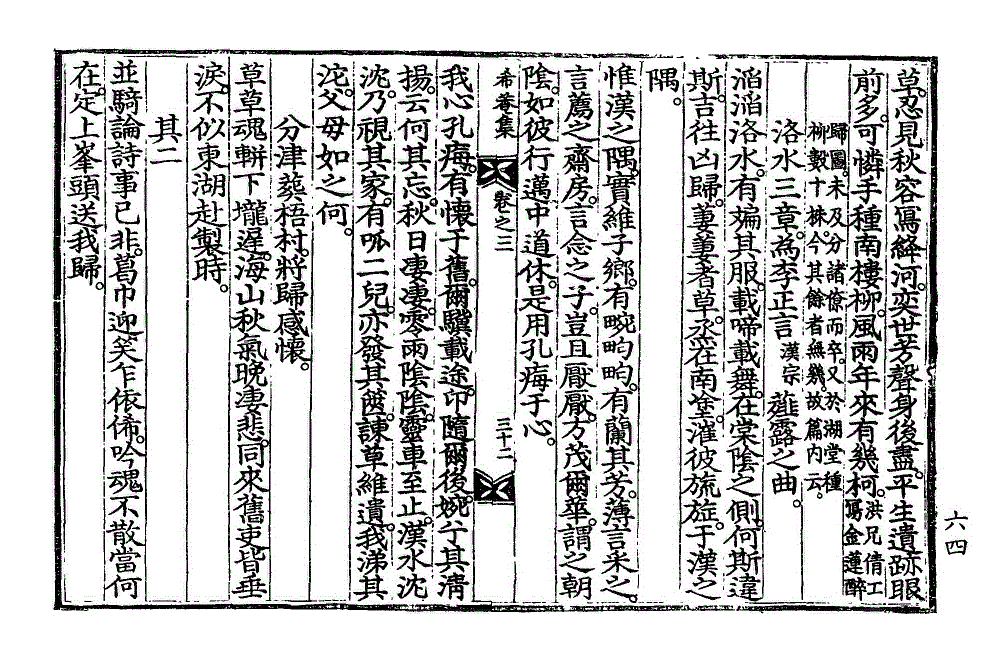 草。忍見秋容寫絳河。奕世芳聲身後盡。平生遺跡眼
前多。可憐手種南樓柳。風雨年來有幾柯。洪兄倩工寫金蓮醉
歸圖。未及分諸僚而卒。又於湖堂種
柳數十株。今其餘者無幾。故篇內云。
洛水三章。爲李正言漢宗薤露之曲。
滔滔洛水。有斒其服。載啼載舞。在棠陰之側。何斯違
斯。吉往凶歸。萋萋者草。烝在南堂。漼彼旒旌。于漢之
隅。
惟漢之隅。實維子鄉。有畹畇畇。有蘭其芳。薄言采之。
言薦之齋房。言念之子。豈且厭厭。方茂爾華。謂之朝
陰。如彼行邁中道休。是用孔痗于心。
希菴集
卷之三
三十二
我心孔痗。有懷于舊。爾驥載途。卬隨爾後。婉兮其淸
揚。云何其忘。秋日凄凄。零雨陰陰。靈車至止。漢水沈
沈。乃視其家。有呱二兒。亦發其篋。諫草維遺。我涕其
沱。父母如之何。
分津葬梧村。將歸感懷。
草草魂輧下壠遲。海山秋氣晚凄悲。同來舊吏皆垂
淚。不似東湖赴製時。
其二
並騎論詩事已非。葛巾迎笑乍依俙。吟魂不散當何
在。定上峯頭送我歸。
六四